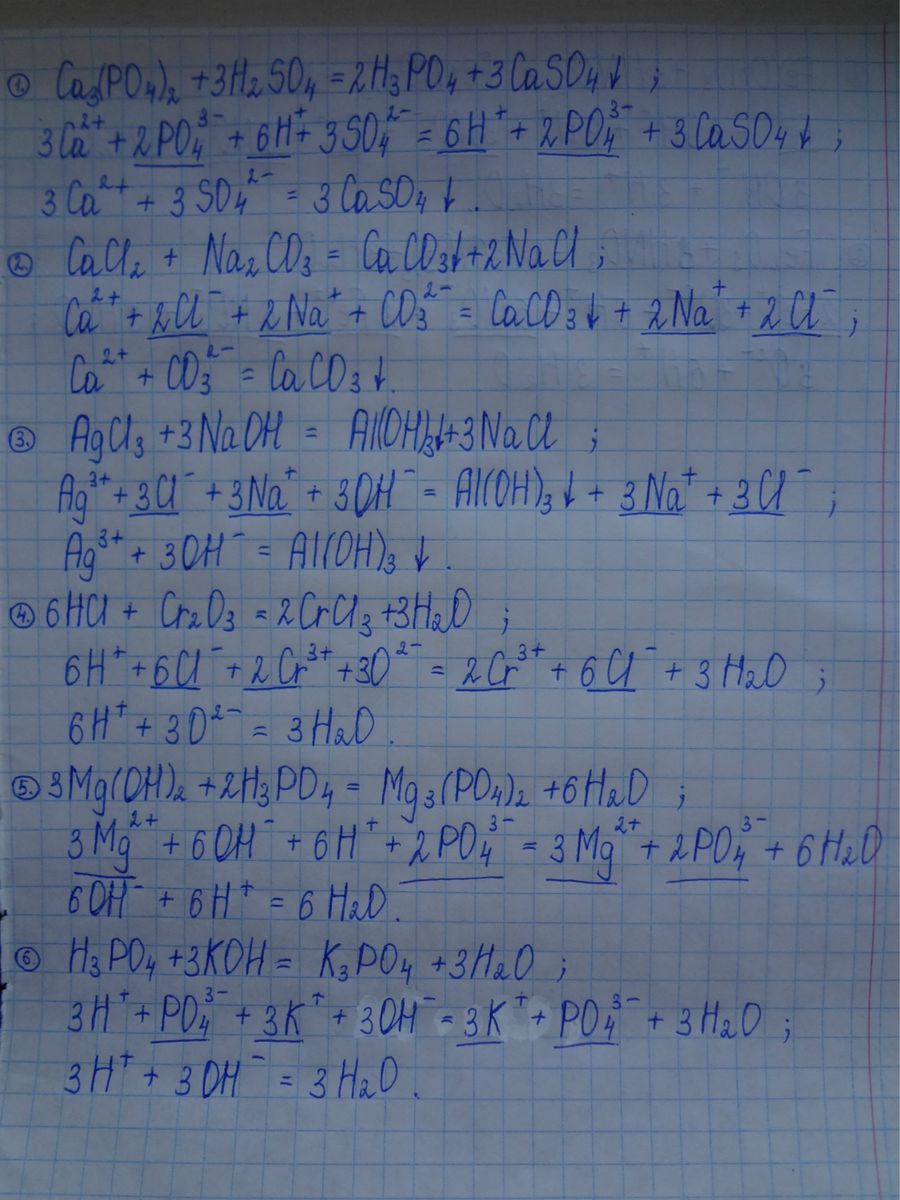 1. Ca₃(PO₄)₂ + 3H₂SO₄ = 2H₃PO₄ + 3CaSO₄↓ ;
3Ca²⁺ + 2PO₄³⁻ + 6H⁺ + 3SO₄²⁻ = 6H⁺ + 2PO₄³⁻ + 3CaSO₄↓ ;
3Ca²⁺ + 3SO₄²⁻ = 3CaSO₄↓ .
2. CaCl₂ + Na₂CO₃ = CaCO₃↓ + 2NaCl ;
Ca²⁺ + 2Cl⁻ + 2Na⁺ + CO₃²⁻ = CaCO₃↓ + 2Na⁺ + 2Cl⁻ ;
Ca²⁺ + CO₃²⁻ = CaCO₃↓.
3. AgCl₃ + 3NaOH = Al(OH)₃↓ + 3NaCl ;
Ag³⁺ + 3Cl⁻ + 3Na⁺ + 3OH⁻ = Al(OH)₃↓ + 3Na⁺ + 3Cl⁻ ;
Ag³⁺ + 3OH⁻ = Al(OH)₃↓ .
4. 6HCl + Cr₂O₃ = 2CrCl₃ + 3H₂O ;
6H⁺ + 6Cl⁻ + 2Cr³⁺ + 3O²⁻ = 2Cr³⁺ + 6Cl⁻ + 3H₂O ;
6H⁺ + 3O²⁻ = 3H₂O .
5. 3Mg(OH)₂ + 2H₃PO₄ = Mg₃(PO₄)₂ + 6H₂O ;
3Mg²⁺ + 6OH⁻ + 6H⁺ + 2PO₄³⁻ = 3Mg²⁺ + 2PO₄³⁻ + 6H₂O
6OH⁻ + 6H⁺ = 6H₂O .
6. H₃PO₄ + 3KOH = K₃PO₄ + 3H₂O ;
3H⁺ + PO₄³⁻ + 3K⁺ + 3OH⁻ = 3K⁺ + PO₄³⁻ + 3H₂O ;
3H⁺ + 3OH⁻ = 3H₂O .